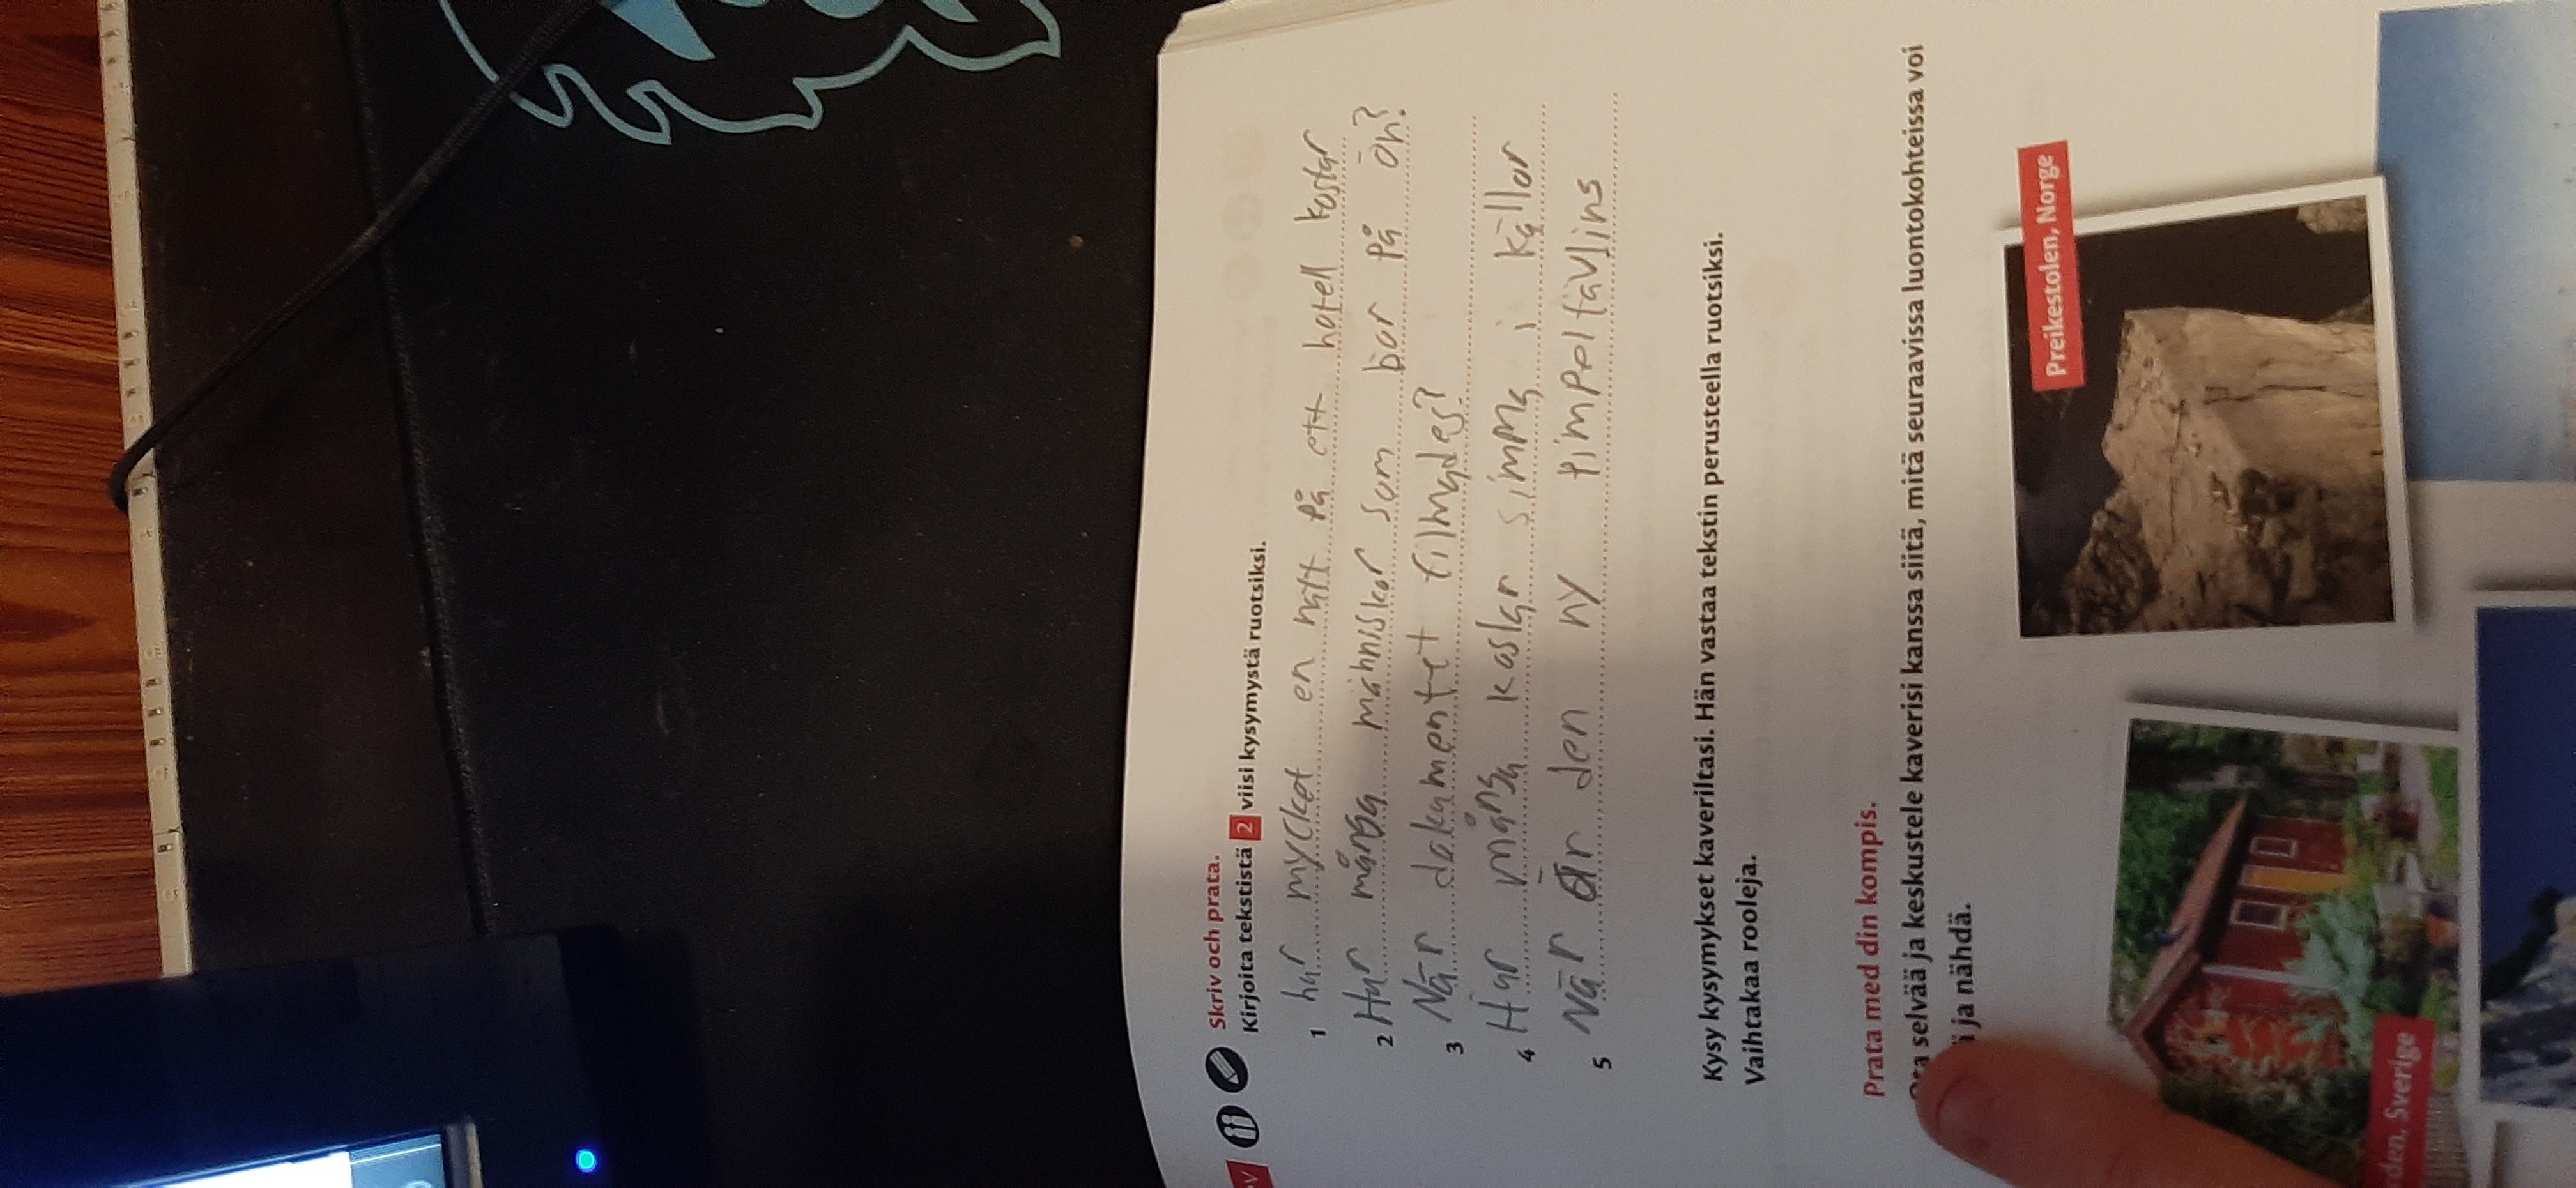 Skriv och prata.
Kirjoita tekstistä 2 viisi kysymystä ruotsiksi.
1 hur mycket en natt på ett hotell kostar
2 Hur många människor som bor på ön?
3 När dokumentet filmades?
4 Hur många kaslar simma i källor
5 När är den ny
Kysy kysymykset kaveriltasi. Hän vastaa tekstin perusteella ruotsiksi.
Vaihtakaa rooleja.
Prata med din kompis.
selvää ja keskustele kaverisi kanssa siitä, mitä seuraavissa luontokohteissa voi
ja nähdä.
Preikestolen, Norge
den, Sverige